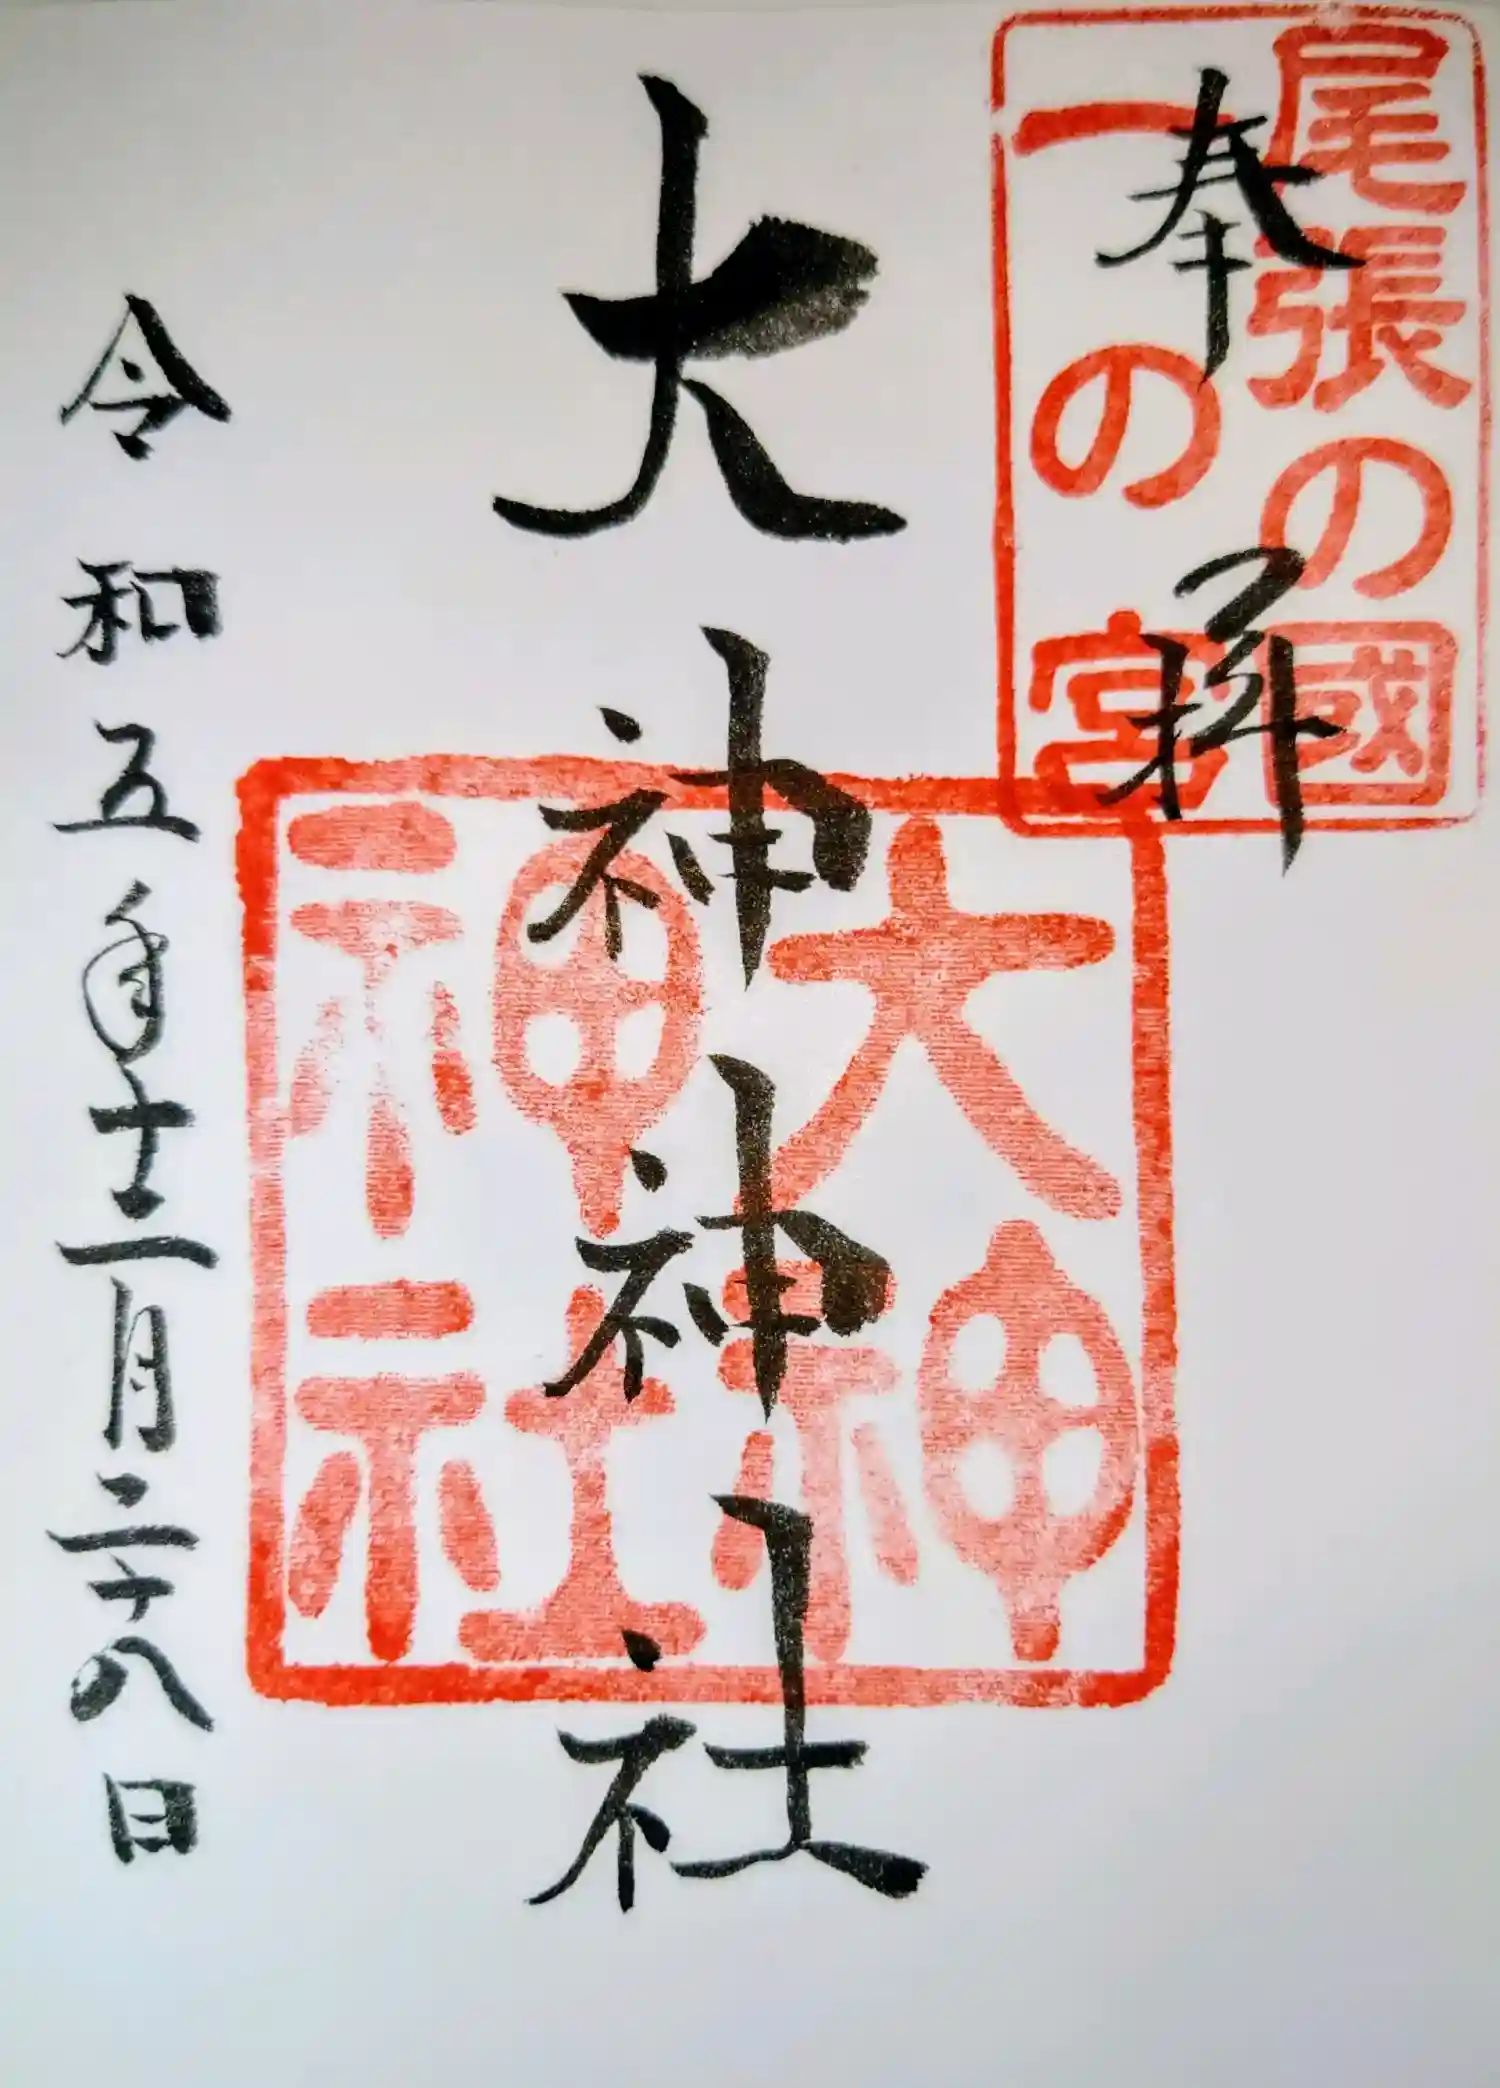 尾張の國
一の宮
奉拝
大神神社
大神
神社
令和五年十二月二十八日